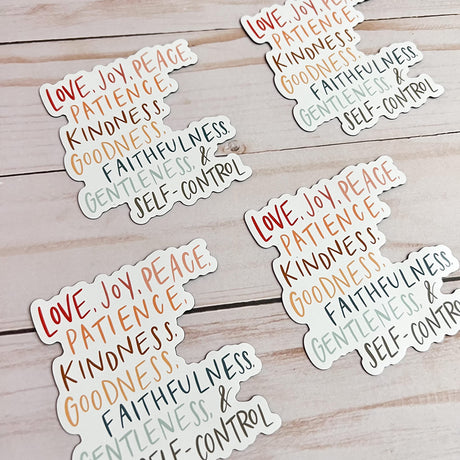 LOVE, JOY, PEACE,
PATIENCE,
KINDNESS,
GOODNESS,
FAITHFULNESS,
GENTLENESS, &
SELF-CONTROL
LOVE, JOY, PEACE,
PATIENCE,
KINDNESS,
GOODNESS,
FAITHFULNESS,
GENTLENESS, &
SELF-CONTROL
LOVE, JOY, PEACE,
PATIENCE,
KINDNESS,
GOODNESS,
FAITHFULNESS,
GENTLENESS, &
SELF-CONTROL
LOVE, JOY, PEACE,
PATIENCE,
KINDNESS,
GOODNESS,
FAITHFULNESS,
GENTLENESS, &
SELF-CONTROL